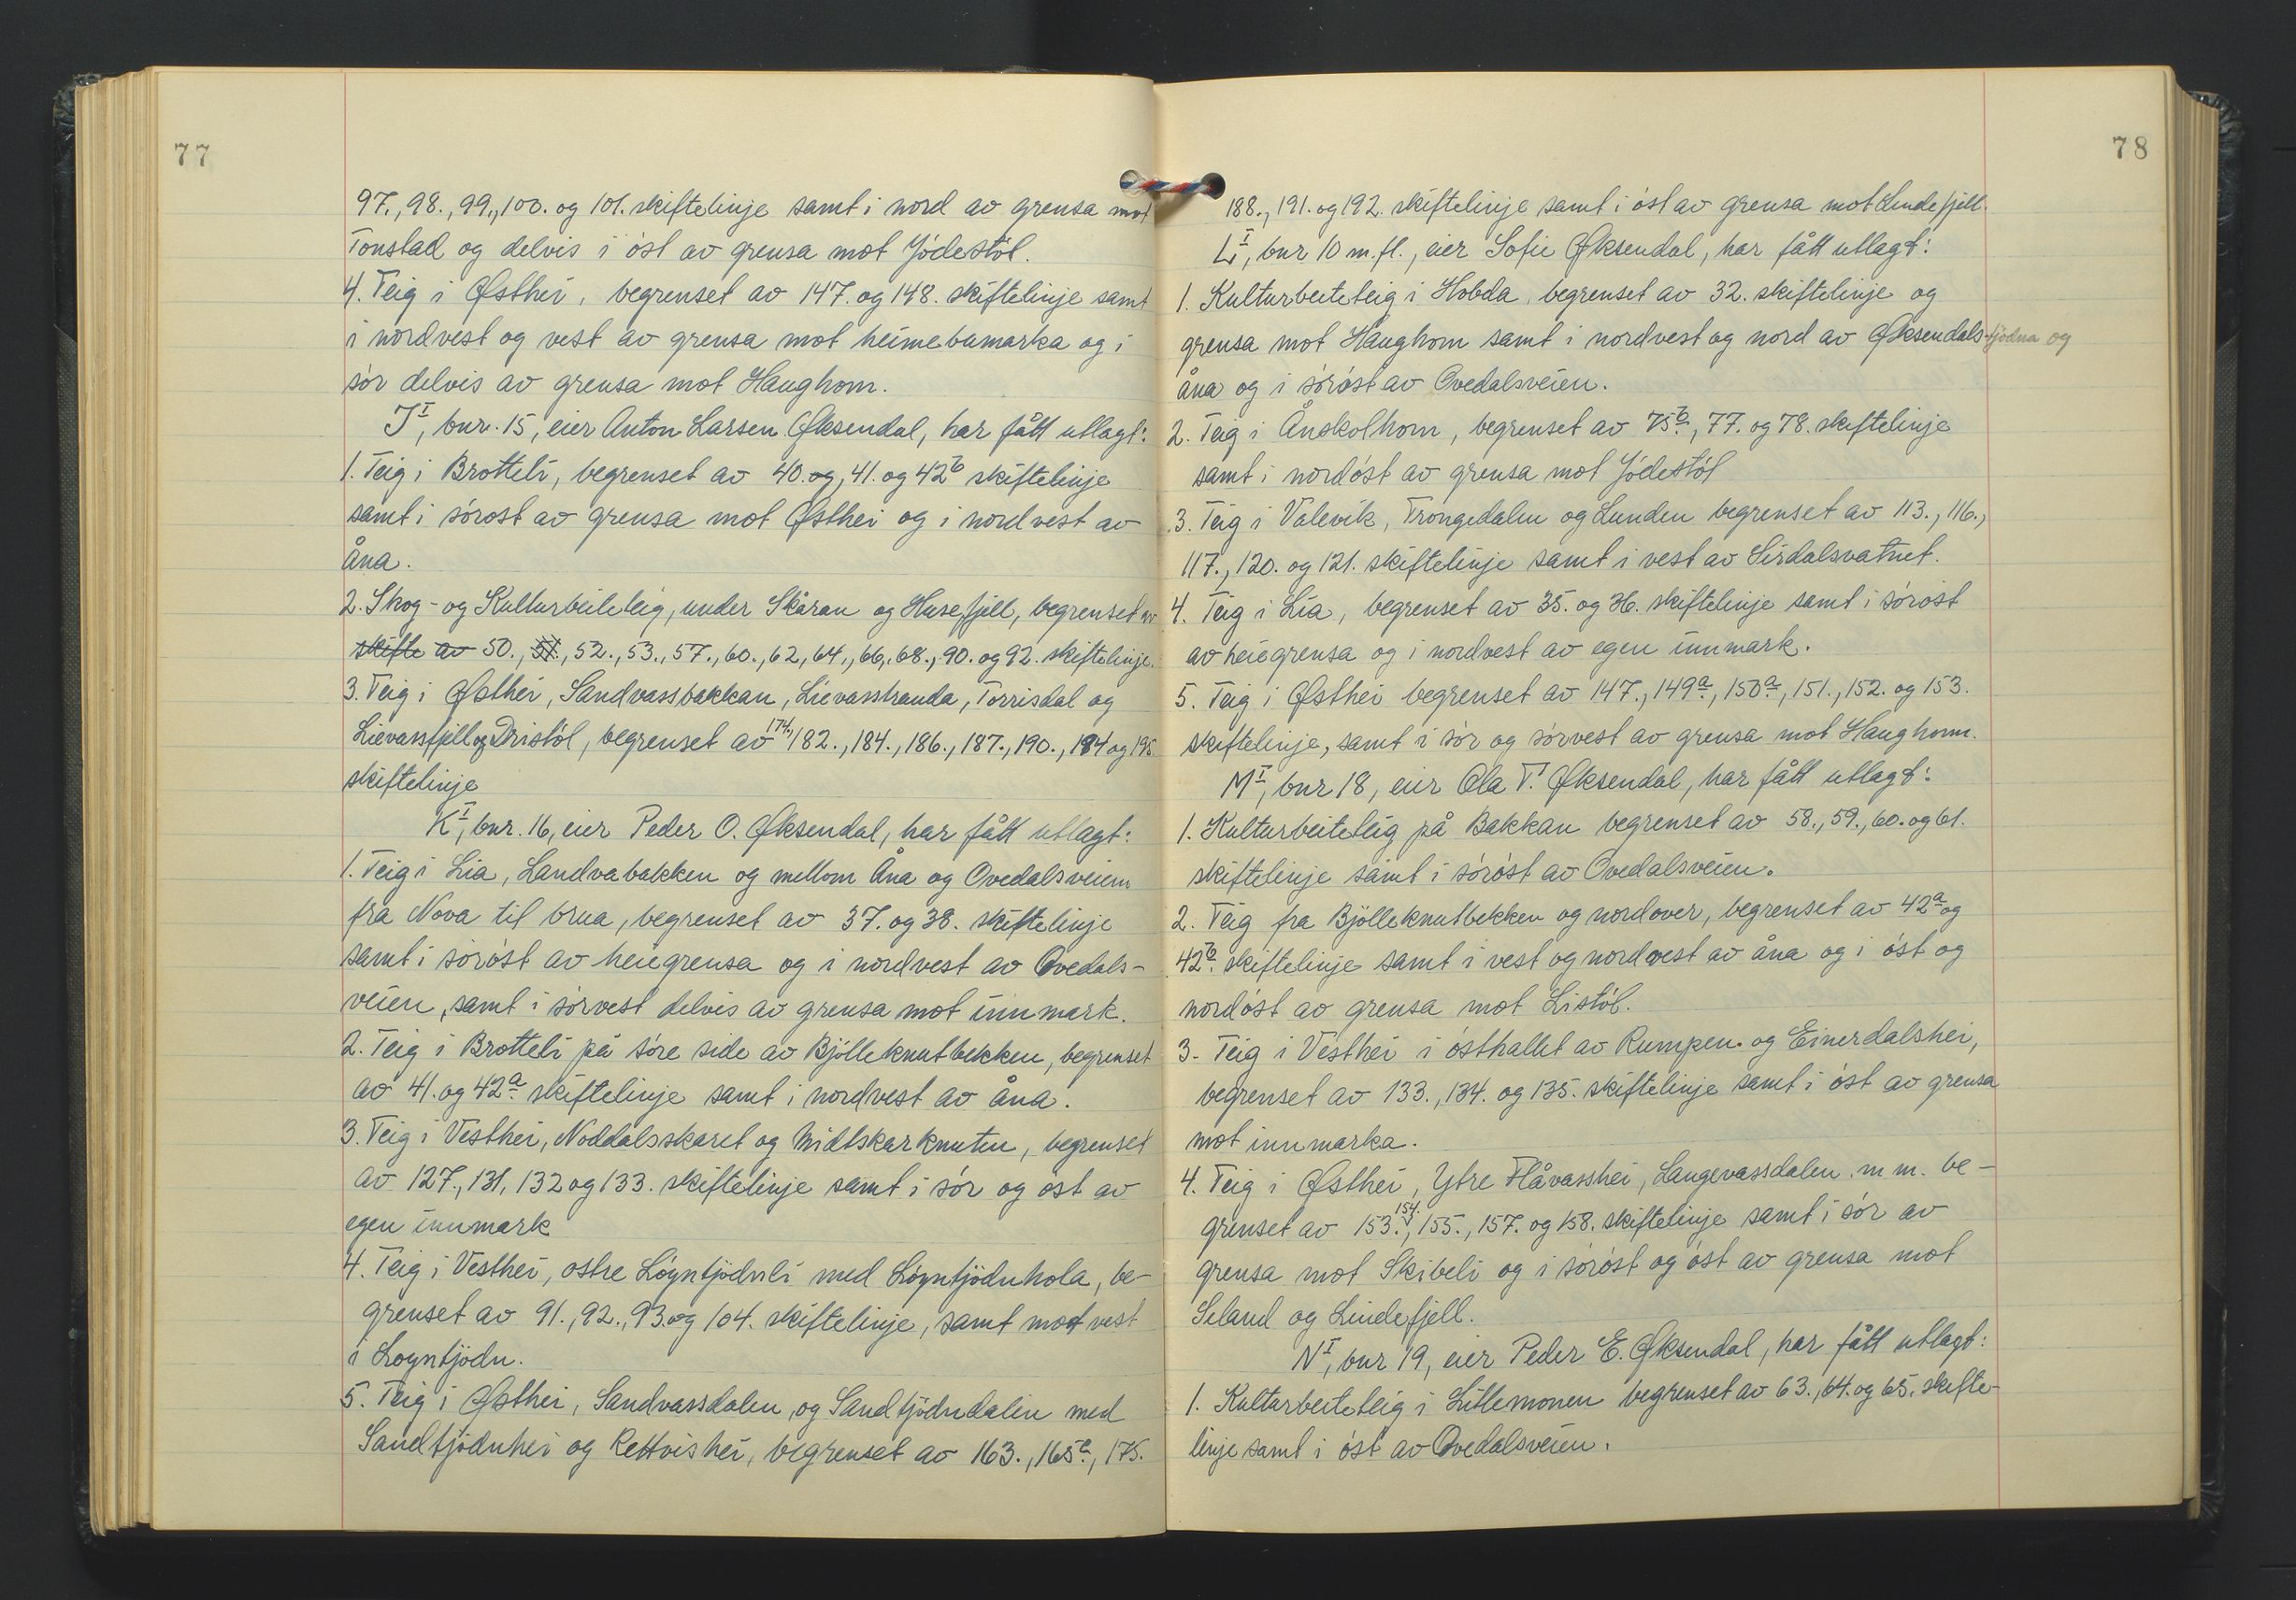 77
97., 98., 99., 100. og 101. skiftelinje samt i nord av grensa mot
Tonstad og delvis i öst av grensa mot Jödestöl.
4. Teig i Østhei, begrenset av 147. og 148. skiftelinje samt
i nordvest og vest av grensa mot heimebumarka og i
sör delvis av grensa mot Haughom.
J I, bnr. 15, eier Anton Larsen Øksendal, har fått utlagt:
1. Teig i Brotteli, begrenset av 40. og, 41. og 42 b skiftelinje
samt i söröst av grensa mot Østhei og i nordvest av
åna.
2. Skog- og Kulturbeiteteig, under Skåran og Husefjell, begrenset av
skifte av 50., 51., 52., 53., 57., 60., 62, 64., 66., 68., 90. og 92. skiftelinje.
3. Teig i Østhei, Sandvassbakkan, Lievasstranda, Torrisdal og
Lievassfjell og Dristöl, begrenset av 174., 182., 184., 186., 187., 190., 194 og 195.
skiftelinje
K I, bnr. 16, eier Peder O. Øksendal, har fått utlagt:
1. Teig i Lia, Landvabakken og mellom Åna og Ovedalsveien
fra Nova til brua, begrenset av 37. og 38. skiftelinje
samt i söröst av heiegrensa og i nordvest av Ovedals-
veien, samt i sörvest delvis av grensa mot innmark.
2. Teig i Brotteli på söre side av Bjölleknutbekken, begrenset
av 41. og 42 a skiftelinje samt i nordvest av åna.
3. Teig i Vesthei, Noddalsskaret og Midtskarknuten, begrenset
av 127., 131, 132 og 133. skiftelinje samt i sör og öst av
egen innmark
4. Teig i Vesthei, östre Löyntjödnli med Löyntjödnhola, be-
grenset av 91., 92., 93. og 104. skiftelinje, samt mot vest
i Löyntjödn.
5. Teig i Østhei, Sandvassdalen, og Sandtjödndalen med
Sandtjödnhei og Rettvishei, begrenset av 163., 165 a, 175.
78
188., 191. og 192. skiftelinje samt i öst av grensa mot Lindefjell.
L I, bnr 10 m. fl., eier Sofie Øksendal, har fått utlagt:
1. Kulturbeiteteig i Hobda, begrenset av 32. skiftelinje og
grensa mot Haughom samt i nordvest og nord av Øksendals-tjödna og
åna og i söröst av Ovedalsveien.
2. Teig i Ånskolhom, begrenset av 75 b, 77. og 78. skiftelinje
samt i nordöst av grensa mot Jödestöl
3. Teig i Valevik, Trongedalen og Lunden begrenset av 113., 116.,
117., 120. og 121. skiftelinje samt i vest av Sirdalsvatnet.
4. Teig i Lia, begrenset av 35. og 36. skiftelinje samt i söröst
av heiegrensa og i nordvest av egen innmark.
5. Teig i Østhei begrenset av 147., 149 a, 150 a, 151., 152. og 153.
skiftelinje, samt i sör og sörvest av grensa mot Haughom.
M I, bnr 18, eier Ola T. Øksendal, har fått utlagt:
1. Kulturbeiteteig på Bakkan begrenset av 58., 59., 60. og 61.
skiftelinje samt i söröst av Ovedalsveien.
2. Teig fra Bjölleknutbekken og nordover, begrenset av 42 a og
42 b. skiftelinje samt i vest og nordvest av åna og i öst og
nordöst av grensa mot Listöl.
3. Teig i Vesthei i östhallet av Rumpen og Einerdalshei,
begrenset av 133., 134. og 135. skiftelinje samt i öst av grensa
mot innmarka.
4. Teig i Østhei, Ytre Flåvasshei, Langevassdalen m m. be-
grenset av 153., 154., 155., 157. og 158. skiftelinje samt i sör av
grensa mot Skibeli og i söröst og öst av grensa mot
Seland og Lindefjell.
N I, bnr 19, eier Peder E. Øksendal, har fått utlagt:
1. Kulturbeiteteig i Litlemonen begrenset av 63., 64. og 65. skifte-
linje samt i öst av Ovedalsveien.